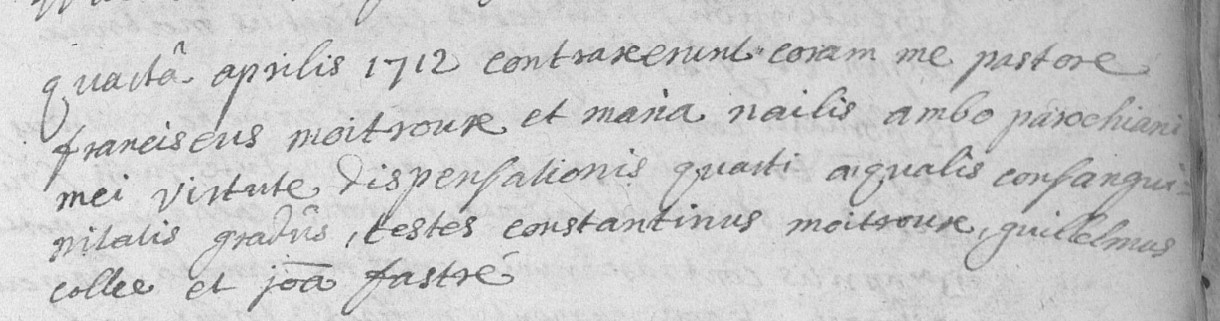 quartâ aprilis 1712 contraxerunt coram me pastore
franciscus moitroux et maria nailis ambo parochiani
mei virtute dispensationis quarti aequalis consangui=
nitatis gradûs, testes constantinus moitroux, guillelmus
collee et joa fastré